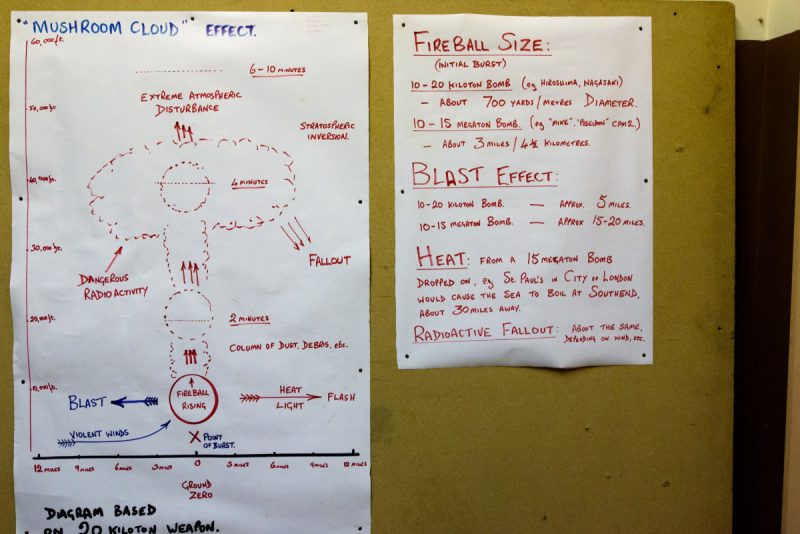 "MUSHROOM CLOUD" EFFECT.
60,000ft.
6-10 MINUTES
EXTREME ATMOSPHERIC
DISTURBANCE
50,000ft.
STRATOSPHERIC
INVERSION.
40,000ft.
4 MINUTES
30,000ft.
FALLOUT
DANGEROUS
RADIOACTIVITY
20,000ft.
2 MINUTES
COLUMN OF DUST, DEBRIS, etc.
10,000ft.
FIREBALL
RISING
BLAST
HEAT
LIGHT
FLASH
VIOLENT WINDS
POINT
OF BURST.
12 MILES 9 MILES 6 MILES 3 MILES 0 3 MILES 6 MILES 9 MILES 12 MILES
GROUND
ZERO
DIAGRAM BASED
ON 20 KILOTON WEAPON.
FIREBALL SIZE:
(INITIAL BURST)
10-20 KILOTON BOMB (eg HIROSHIMA, NAGASAKI)
- ABOUT 700 YARDS/METRES DIAMETER.
10-15 MEGATON BOMB. (eg "MIKE", "POSEIDON"
- ABOUT 3 MILES / 4½ KILOMETRES.
BLAST EFFECT:
10-20 KILOTON BOMB. - APPROX. 5 MILES.
10-15 MEGATON BOMB. - APPROX 15-20 MILES.
HEAT: FROM A 15 MEGATON BOMB
DROPPED ON, eg ST. PAUL'S IN CITY OF LONDON
WOULD CAUSE THE SEA TO BOIL AT SOUTHEND,
ABOUT 30 MILES AWAY.
RADIOACTIVE FALLOUT: ABOUT THE SAME,
DEPENDING ON WIND, etc.